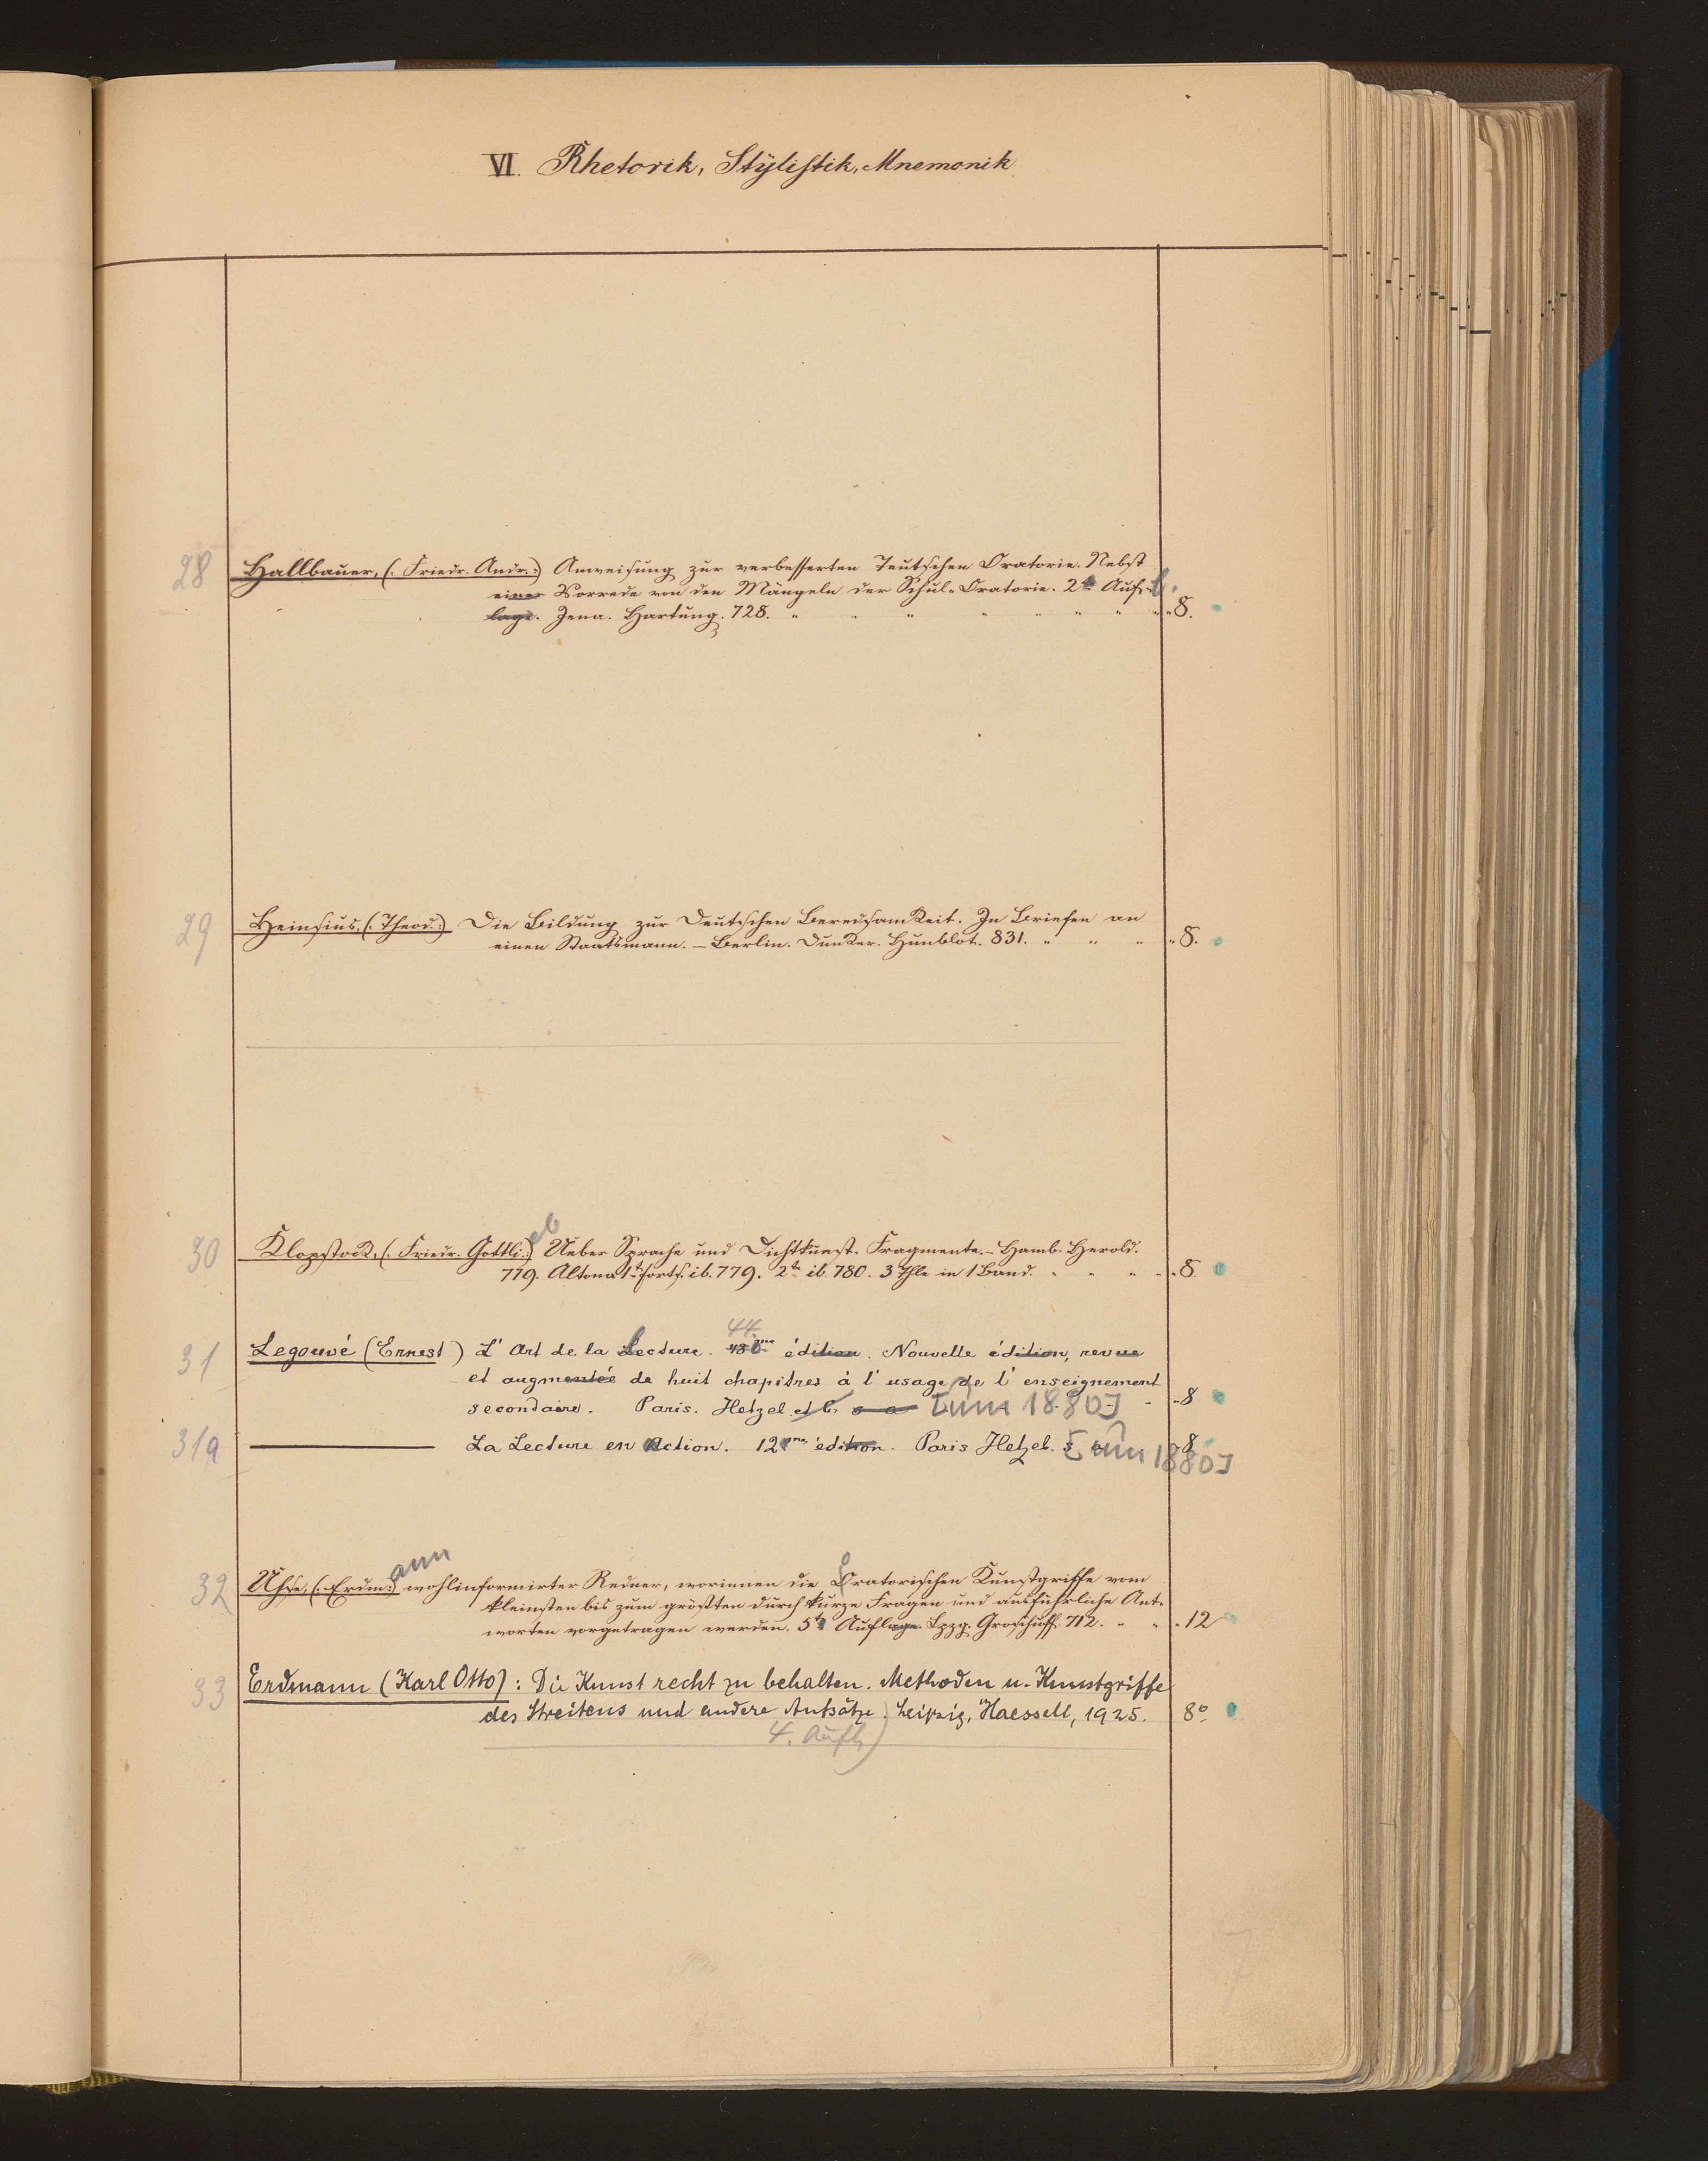 VI. Rhetorik, Stylistik, Mnemonik
28 Hallbauer, (: Friedr. Andr.:) Anweisung zur verbesserten Teutschen Oratorie. Nebst
einer Vorrede von den Mängeln der Schul-Oratorie. 2te Auf-l.
lage. Jena. Hartung. 728. " " " " " " " " 8.
29 Heinsius, (: Theod.:) Die Bildung zur Deutschen Beredsamkeit. In Briefen an
einen Staatsmann. – Berlin. Dunker. Hunblot. 831. " " " " 8.
30 Klopstock, (: Friedr. Gottli:) eb Ueber Sprache und Dichtkunst. Fragmente. – Hamb. Herold.
779. Altona 1te Forts. ib. 779. 2te ib. 780. 3 Thle in 1 Band. " " " " 8.
44.
31 Legouvé (Ernest) L'Art de la lecture. édition. Nouvelle édition, revue
et augmentée de huit chapitres à l'usage de l'enseignement
secondaire. Paris. Hetzel et C. s a [um 1880] - " 8
31a ——— La Lecture en action. 12eme édition. Paris Hetzel. s a [um 1880] 8
32 Uhse, (: Erdm:) ann wohlinformirter Redner, worinnen die oratorischen Kunstgriffe vom
kleinsten bis zum größten durch kurze Fragen und ausführliche Ant-
worten vorgetragen werden. 5te Auflage. Lpzg. Groschuff. 712. " " " 12
33 Erdmann (Karl Otto): Die Kunst recht zu behalten. Methoden u. Kunstgriffe
des Streitens und andere Aufsätze. Leipzig, Haessell, 1925. 8°
4. Aufl.
7